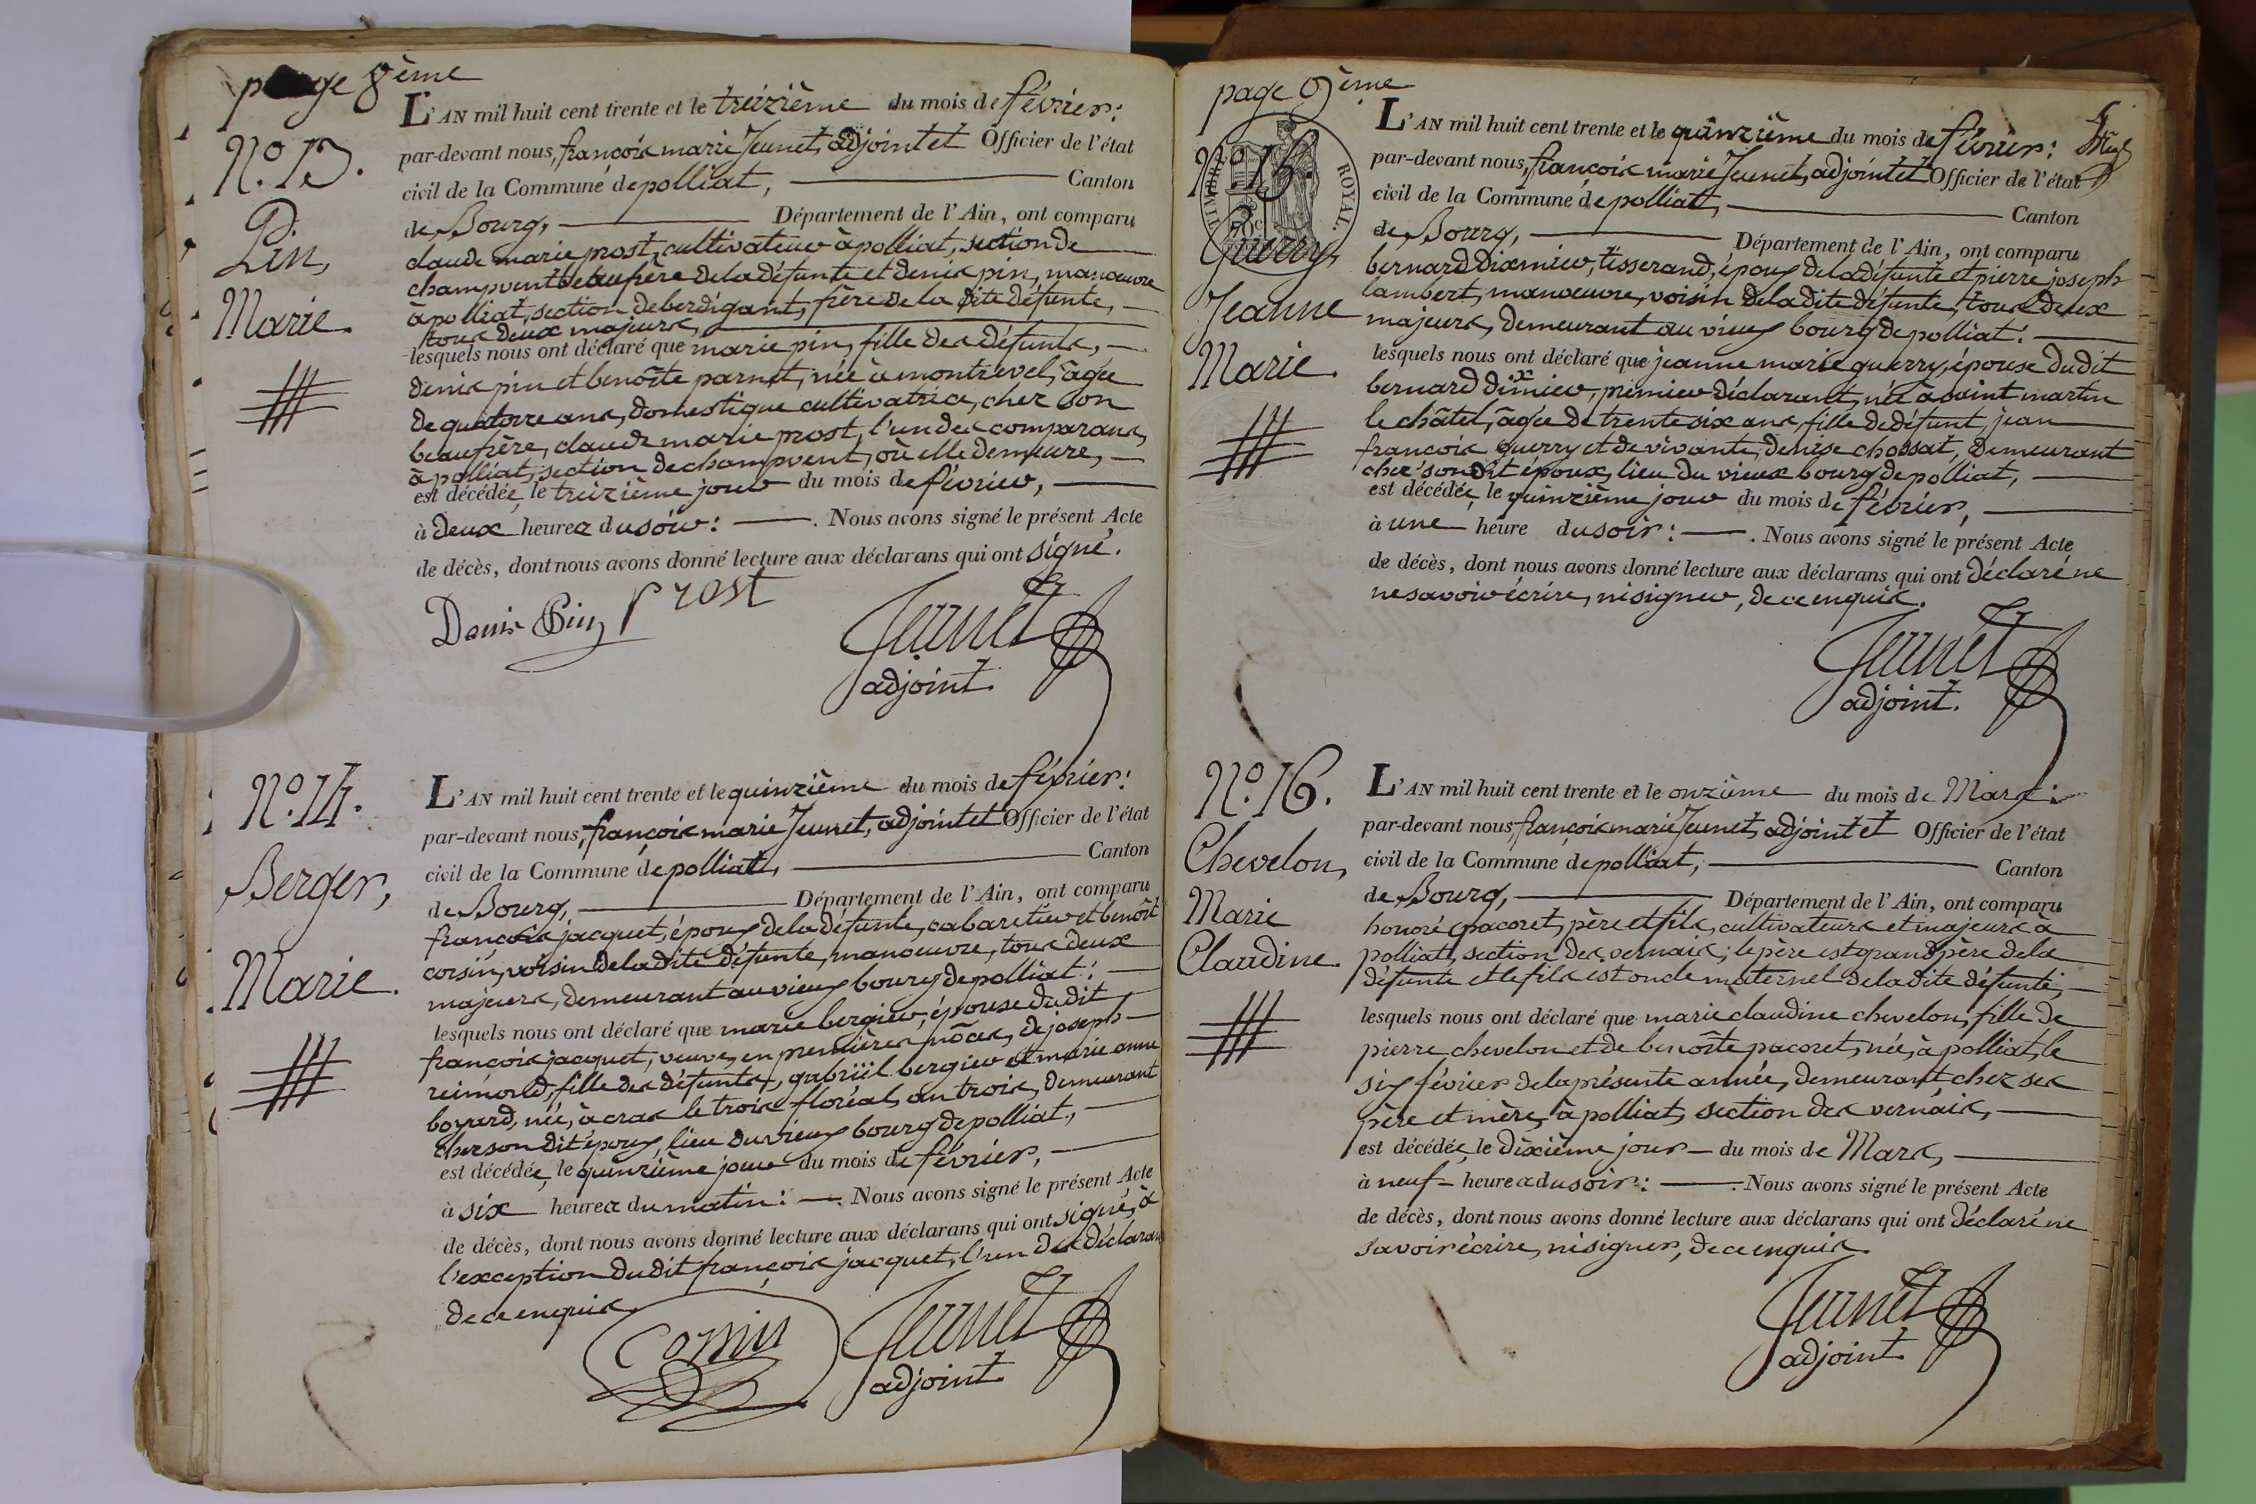 page 8ème
N.o 13.
Pin,
Marie.
L'AN mil huit cent trente et le treizième du mois de février:
par-devant nous, françois marie Jeunet, adjoint et Officier de l'état
civil de la Commune de polliat, Canton
de Bourg, Département de l'Ain, ont comparu
claude marie prost, cultivateur à polliat, section de
champvent beaufrère de la défunte et denis pin, manoeuvre
à polliat, section de berdigant, frère de la dite défunte,
tous deux majeurs,
lesquels nous ont déclaré que marie pin, fille des défunts,
denis pin et benoîte parnet, née à montrevel, âgée
de quatorze ans, domestique cultivatrice, chez son
beaufrère, claude marie prost, l'un des comparans,
à polliat, section de champvent, où elle demeure,
est décédée, le treizième jour du mois de février,
à deux heures du soir: . Nous avons signé le présent Acte
de décès, dont nous avons donné lecture aux déclarans qui ont signé.
Denis Pin Prost Jeunet
adjoint.
N.o 14.
Berger,
Marie.
L'AN mil huit cent trente et le quinzième du mois de février:
par-devant nous, françois marie Jeunet, adjoint et Officier de l'état
civil de la Commune de polliat, Canton
de Bourg, Département de l'Ain, ont comparu
françois jacquet, époux de la défunte, cabaretier et benoît
corsin, voisin de la dite défunte, manoeuvre, tous deux
majeurs, demeurant au vieux bourg de polliat:
lesquels nous ont déclaré que marie bergier, épouse du dit
françois jacquet, veuve, en premières nôces, de joseph
reimond, fille des défunts, gabriël bergier et marie anne
boyard, née, à cras le trois floréal, an trois, demeurant
chez son dit époux, lieu du vieux bourg de polliat,
est décédée, le quinzième jour du mois de février,
à six heures du matin: . Nous avons signé le présent Acte
de décès, dont nous avons donné lecture aux déclarans qui ont signé, à
l'exception du dit françois jacquet, l'un des déclarans
de ce enquis.
Corsin Jeunet
adjoint.
page 9ème
TIMBRE ROYAL.
N.o 15.
Guerry,
Jeanne
Marie.
L'AN mil huit cent trente et le quinzième du mois de février:
par-devant nous, françois marie Jeunet, adjoint et Officier de l'état
civil de la Commune de polliat, Canton
de Bourg, Département de l'Ain, ont comparu
bernard dixmier, tisserand, époux de la défunte et pierre joseph
lambert, manoeuvre, voisin de la dite défunte, tous deux
majeurs, demeurant au vieux bourg de polliat:
lesquels nous ont déclaré que jeanne marie guerry, épouse du dit
bernard dixmier, premier déclarant, née à saint martin
le châtel, âgée de trente six ans, fille de défunt, jean
françois guerry et de vivante, denise chossat, demeurant
chez son dit époux, lieu du vieux bourg de polliat,
est décédée, le quinzième jour du mois de février,
à une heure du soir: . Nous avons signé le présent Acte
de décès, dont nous avons donné lecture aux déclarans qui ont déclaré ne
ne savoir écrire, ni signer, de ce enquis.
Jeunet
adjoint.
N.o 16.
Chevelon,
Marie
Claudine.
L'AN mil huit cent trente et le onzième du mois de Mars:
par-devant nous, françois marie Jeunet, adjoint et Officier de l'état
civil de la Commune de polliat, Canton
de Bourg, Département de l'Ain, ont comparu
honoré pacoret, père et fils, cultivateurs et majeurs à
polliat, section des vernais; le père est grand père de la
défunte et le fils est oncle maternel de la dite défunte;
lesquels nous ont déclaré que marie claudine chevelon, fille de
pierre chevelon et de benoîte pacoret, née, à polliat, le
six février de la présente année, demeurant chez ses
père et mère, à polliat, section des vernais,
est décédée, le dixième jour du mois de Mars,
à neuf heures du soir: . Nous avons signé le présent Acte
de décès, dont nous avons donné lecture aux déclarans qui ont déclaré ne
savoir écrire, ni signer, de ce enquis.
Jeunet
adjoint.